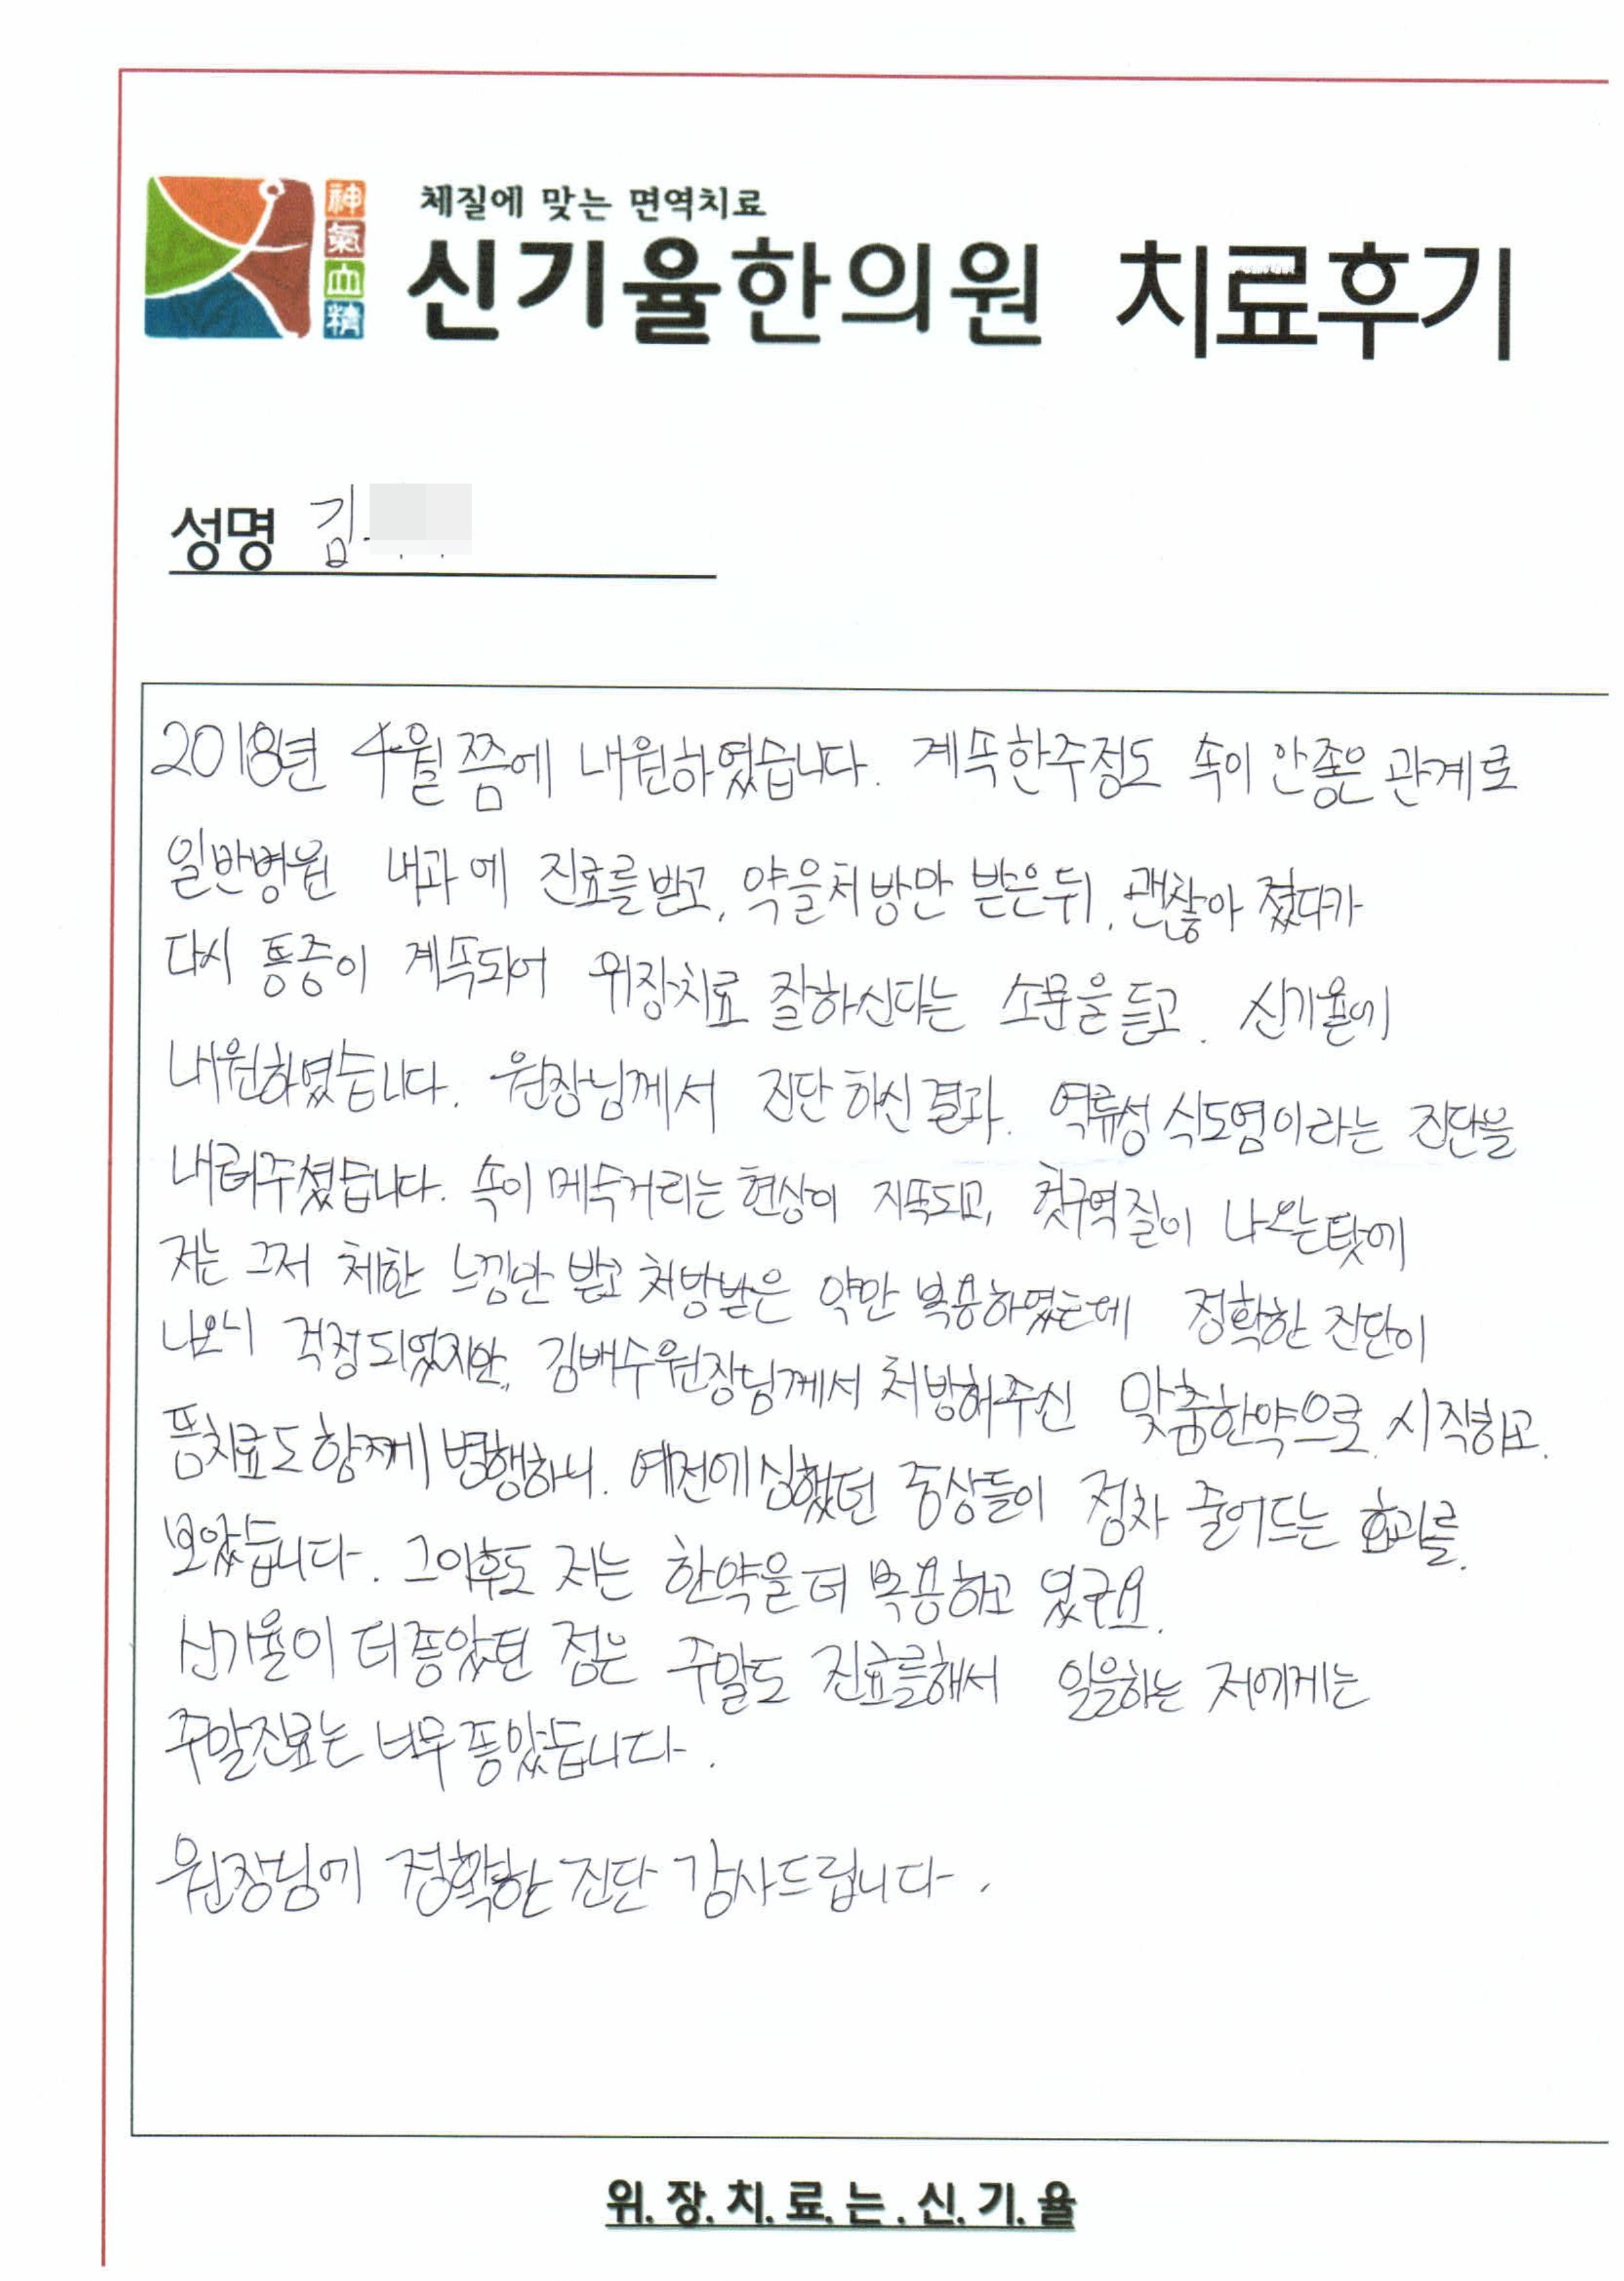 체질에 맞는 면역치료
神氣血精
신기율한의원 치료후기
성명 김
2018년 4월쯤에 내원하였습니다. 계속한주정도 속이 안좋은 관계로
일반병원 내과에 진료를 받고, 약을처방만 받은뒤, 괜찮아 졌다가
다시 통증이 계속되어 위장치료 잘하신다는 소문을 듣고. 신기율에
내원하였습니다. 원장님께서 진단하신결과. 역류성 식도염이라는 진단을
내려주셨습니다. 속이 메슥거리는 현상이 지속되고, 헛구역질이 나오는탓에
저는 그저 체한 느낌만 받고 처방받은 약만 복용하였는데 정확한 진단이
나오니 걱정되었지만, 김배수원장님께서 처방해주신 맞춤한약으로 시작하고.
뜸치료도 함께 병행하니. 예전에 심했던 증상들이 점차 줄어드는 효과를
보았습니다. 그이후도 저는 한약을 더 복용하고 있구요.
신기율이 더좋았던 점은 주말도 진료를해서 일을하는 저에게는
주말진료는 너무 좋았습니다.
원장님에 정확한 진단 감사드립니다.
위.장.치.료.는.신.기.율